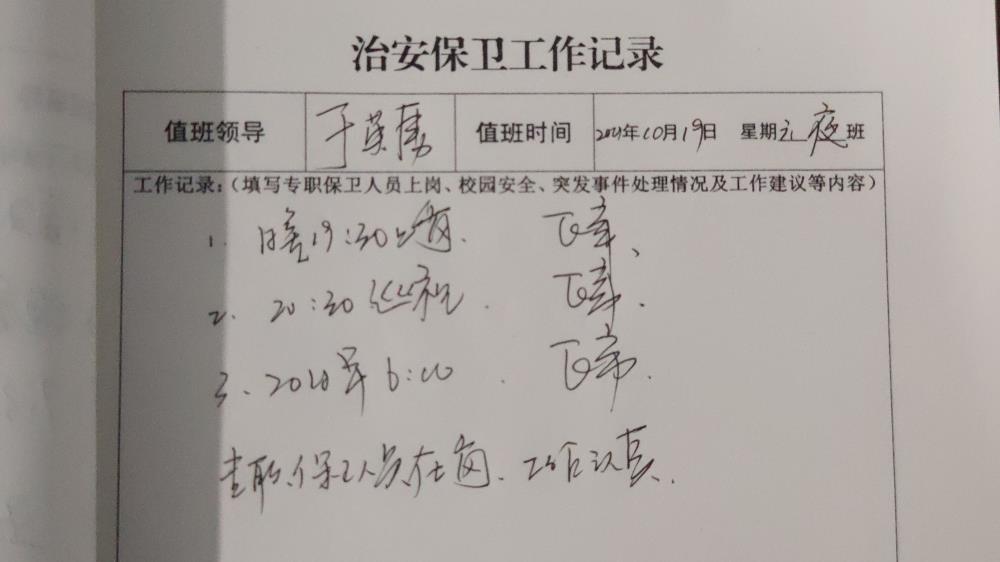 治安保卫工作记录
值班领导 于英勇 值班时间 年10月19日 星期 夜班
工作记录:(填写专职保卫人员上岗、校园安全、突发事件处理情况及工作建议等内容)
1. 晚19:30上岗. 正常、
2. 20:30巡视. 正常.
3、 早6:00. 正常.
专职保卫人员在岗、工作认真.